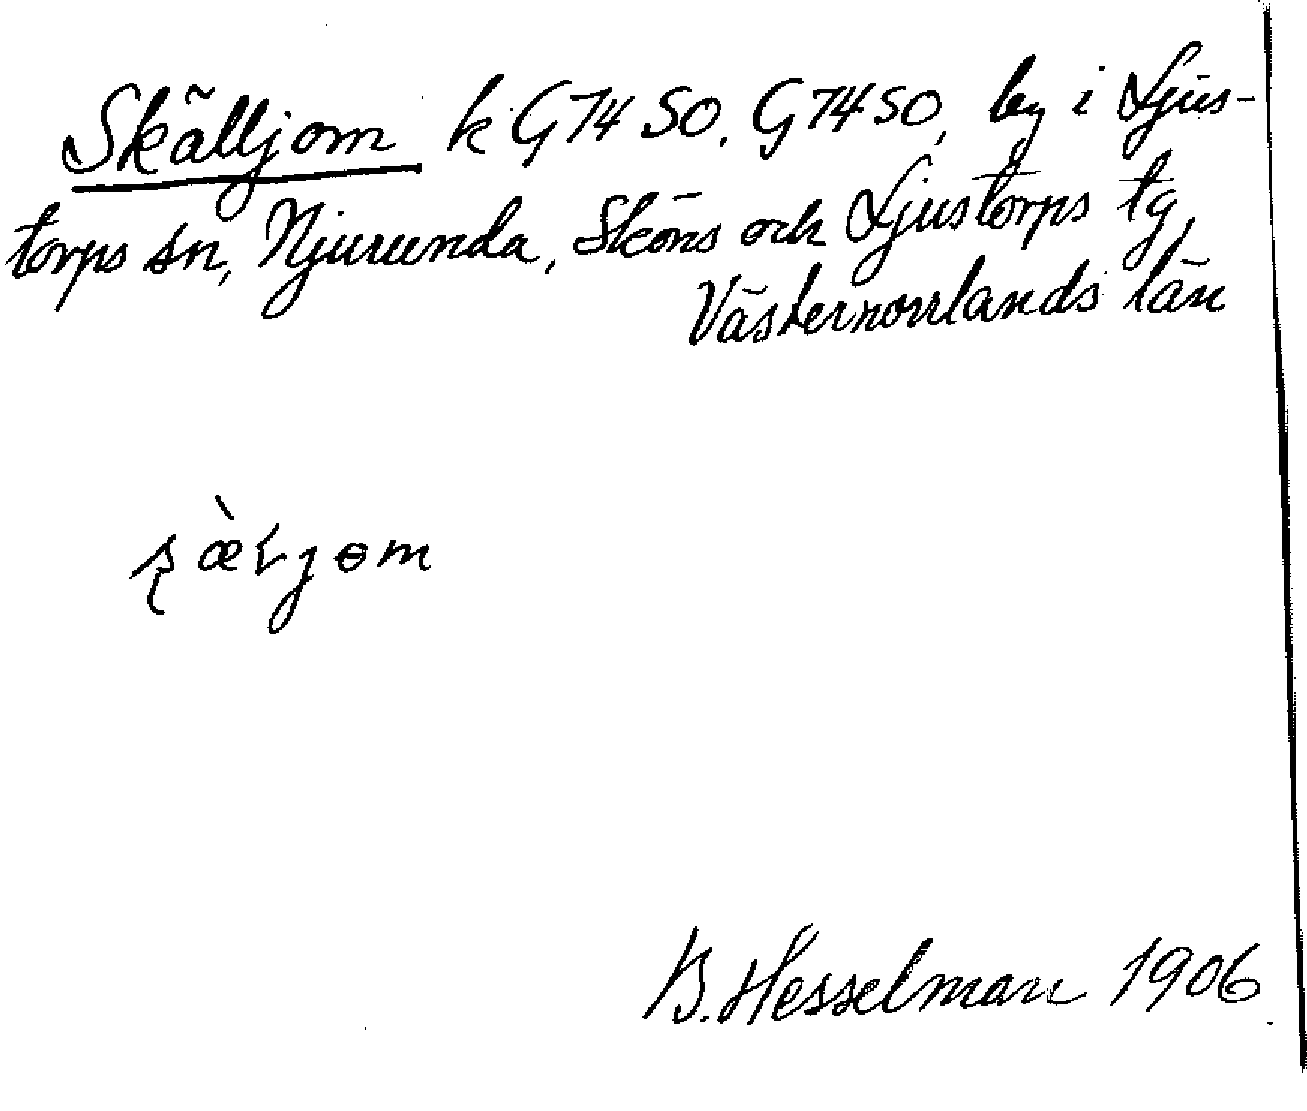 Skälljom k G74 SO. G74 SO, by i Ljus-
torps sn, Njurunda, Sköns och Ljustorps tg,
Västernorrlands län
B. Hesselman 1906